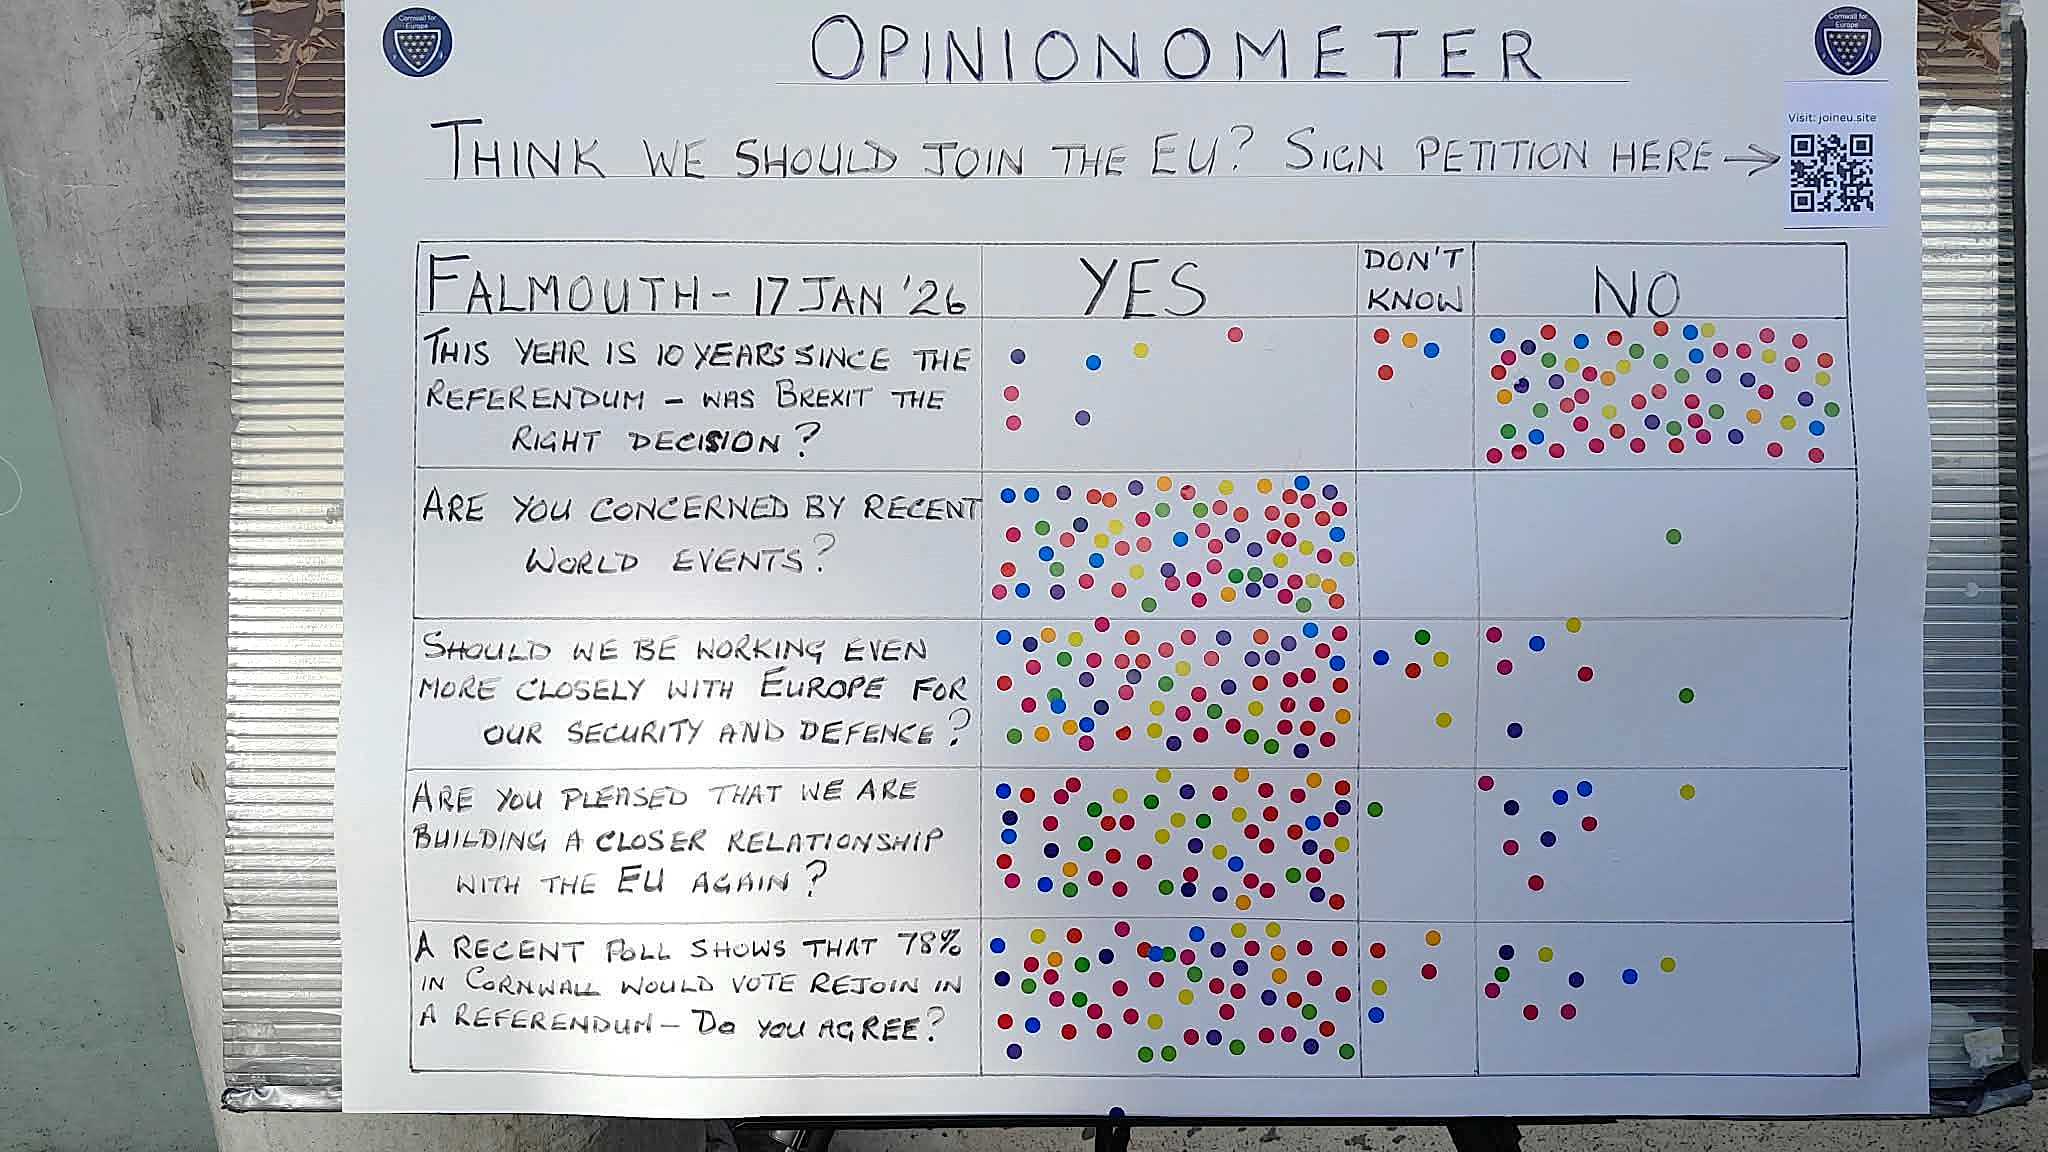 Cornwall for
Europe
OPINIONOMETER
Cornwall for
Europe
THINK WE SHOULD JOIN THE EU? SIGN PETITION HERE →
Visit: joineu.site
FALMOUTH - 17 JAN '26
YES
DON'T
KNOW
NO
THIS YEAR IS 10 YEARS SINCE THE
REFERENDUM - WAS BREXIT THE
RIGHT DECISION?
ARE YOU CONCERNED BY RECENT
WORLD EVENTS?
SHOULD WE BE WORKING EVEN
MORE CLOSELY WITH EUROPE FOR
OUR SECURITY AND DEFENCE?
ARE YOU PLEASED THAT WE ARE
BUILDING A CLOSER RELATIONSHIP
WITH THE EU AGAIN?
A RECENT POLL SHOWS THAT 78%
IN CORNWALL WOULD VOTE REJOIN IN
A REFERENDUM - DO YOU AGREE?